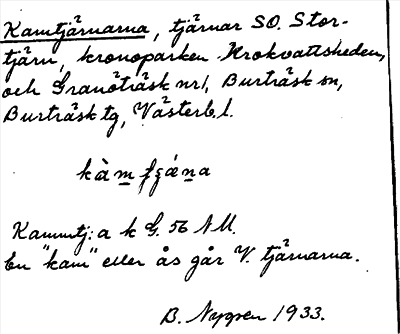 Kamtjärnarna, tjärnar SO. Stor-
tjärn, kronoparken Krokvattsheden,
och Granöträsk nr 1, Burträsk sn,
Burträsk tg, Västerb. l.
Kamtj:a k G. 56 NU.
En "kam" eller ås går V. tjärnarna.
B. Nygren 1933.